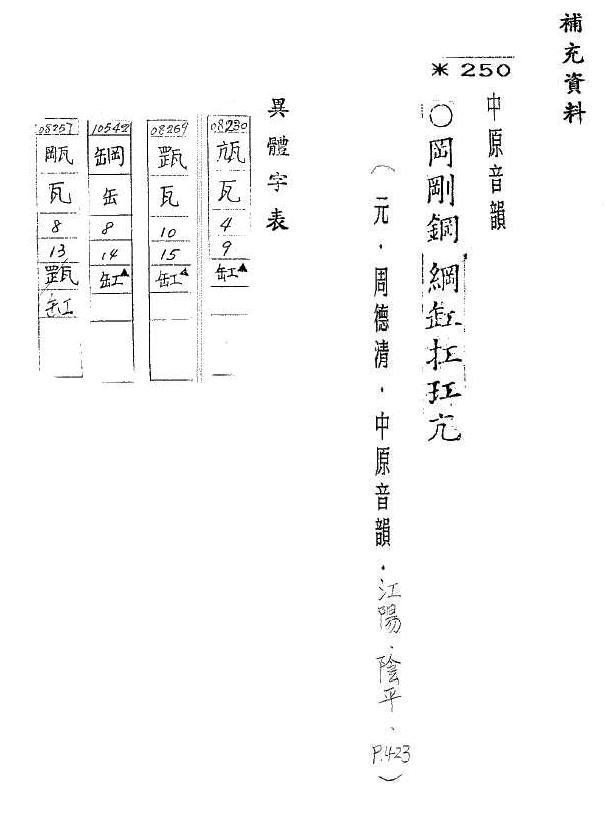 補充資料
＊250
中原音韻
○岡剛鋼綱缸扛玒亢
（元．周德清．中原音韻．江陽、陰平、P.4-23）
異體字表
08230
瓦
4
9
缸▲
08269
瓦
10
15
缸▲
10542
缶
8
14
缸▲
08257
㼚
瓦
8
13
缸